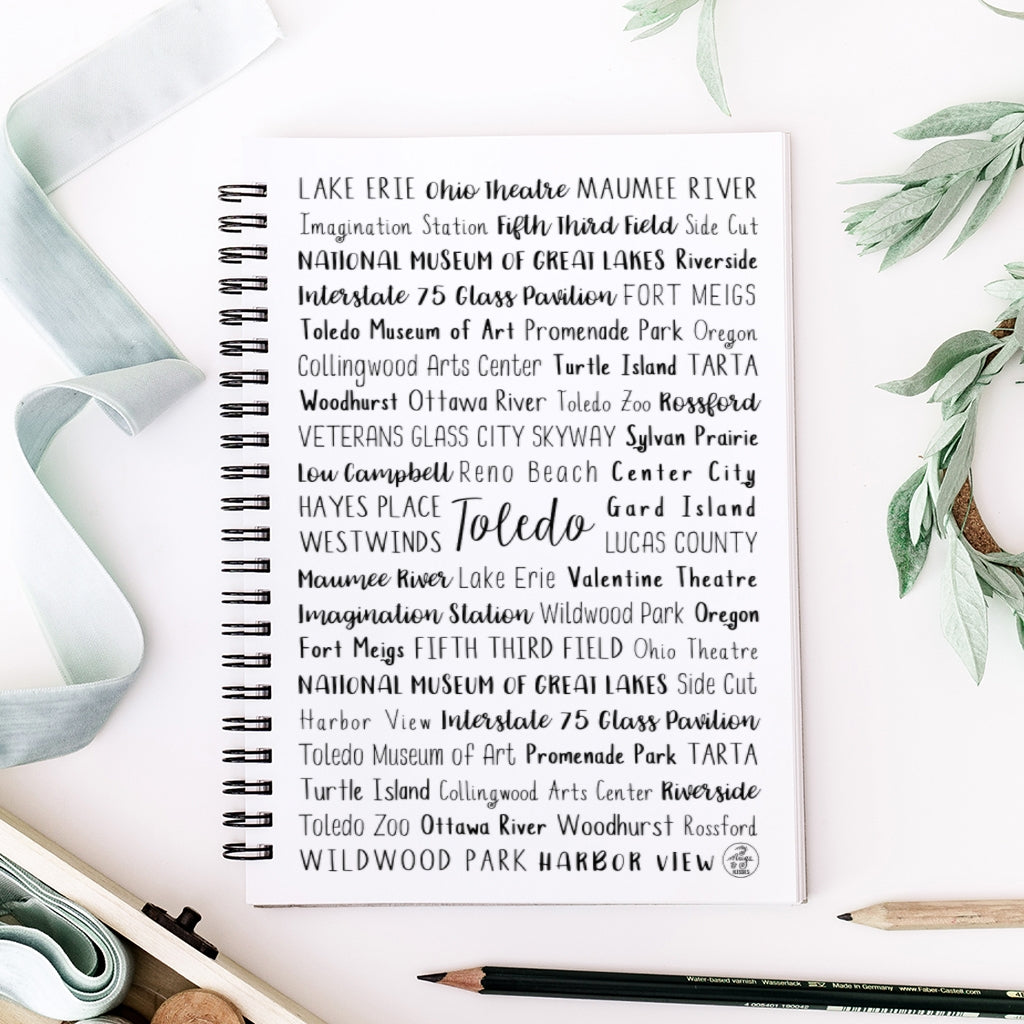 LAKE ERIE Ohio Theatre MAUMEE RIVER
Imagination Station Fifth Third Field Side Cut
NATIONAL MUSEUM OF GREAT LAKES Riverside
Interstate 75 Glass Pavilion FORT MEIGS
Toledo Museum of Art Promenade Park Oregon
Collingwood Arts Center Turtle Island TARTA
Woodhurst Ottawa River Toledo Zoo Rossford
VETERANS GLASS CITY SKYWAY Sylvan Prairie
Lou Campbell Reno Beach Center City
HAYES PLACE Toledo Gard Island
WESTWINDS LUCAS COUNTY
Maumee River Lake Erie Valentine Theatre
Imagination Station Wildwood Park Oregon
Fort Meigs FIFTH THIRD FIELD Ohio Theatre
NATIONAL MUSEUM OF GREAT LAKES Side Cut
Harbor View Interstate 75 Glass Pavilion
Toledo Museum of Art Promenade Park TARTA
Turtle Island Collingwood Arts Center Riverside
Toledo Zoo Ottawa River Woodhurst Rossford
WILDWOOD PARK HARBOR VIEW
Water-based varnish Wasserlack Made in Germany www.Faber-Castell.com
4 005401 190042